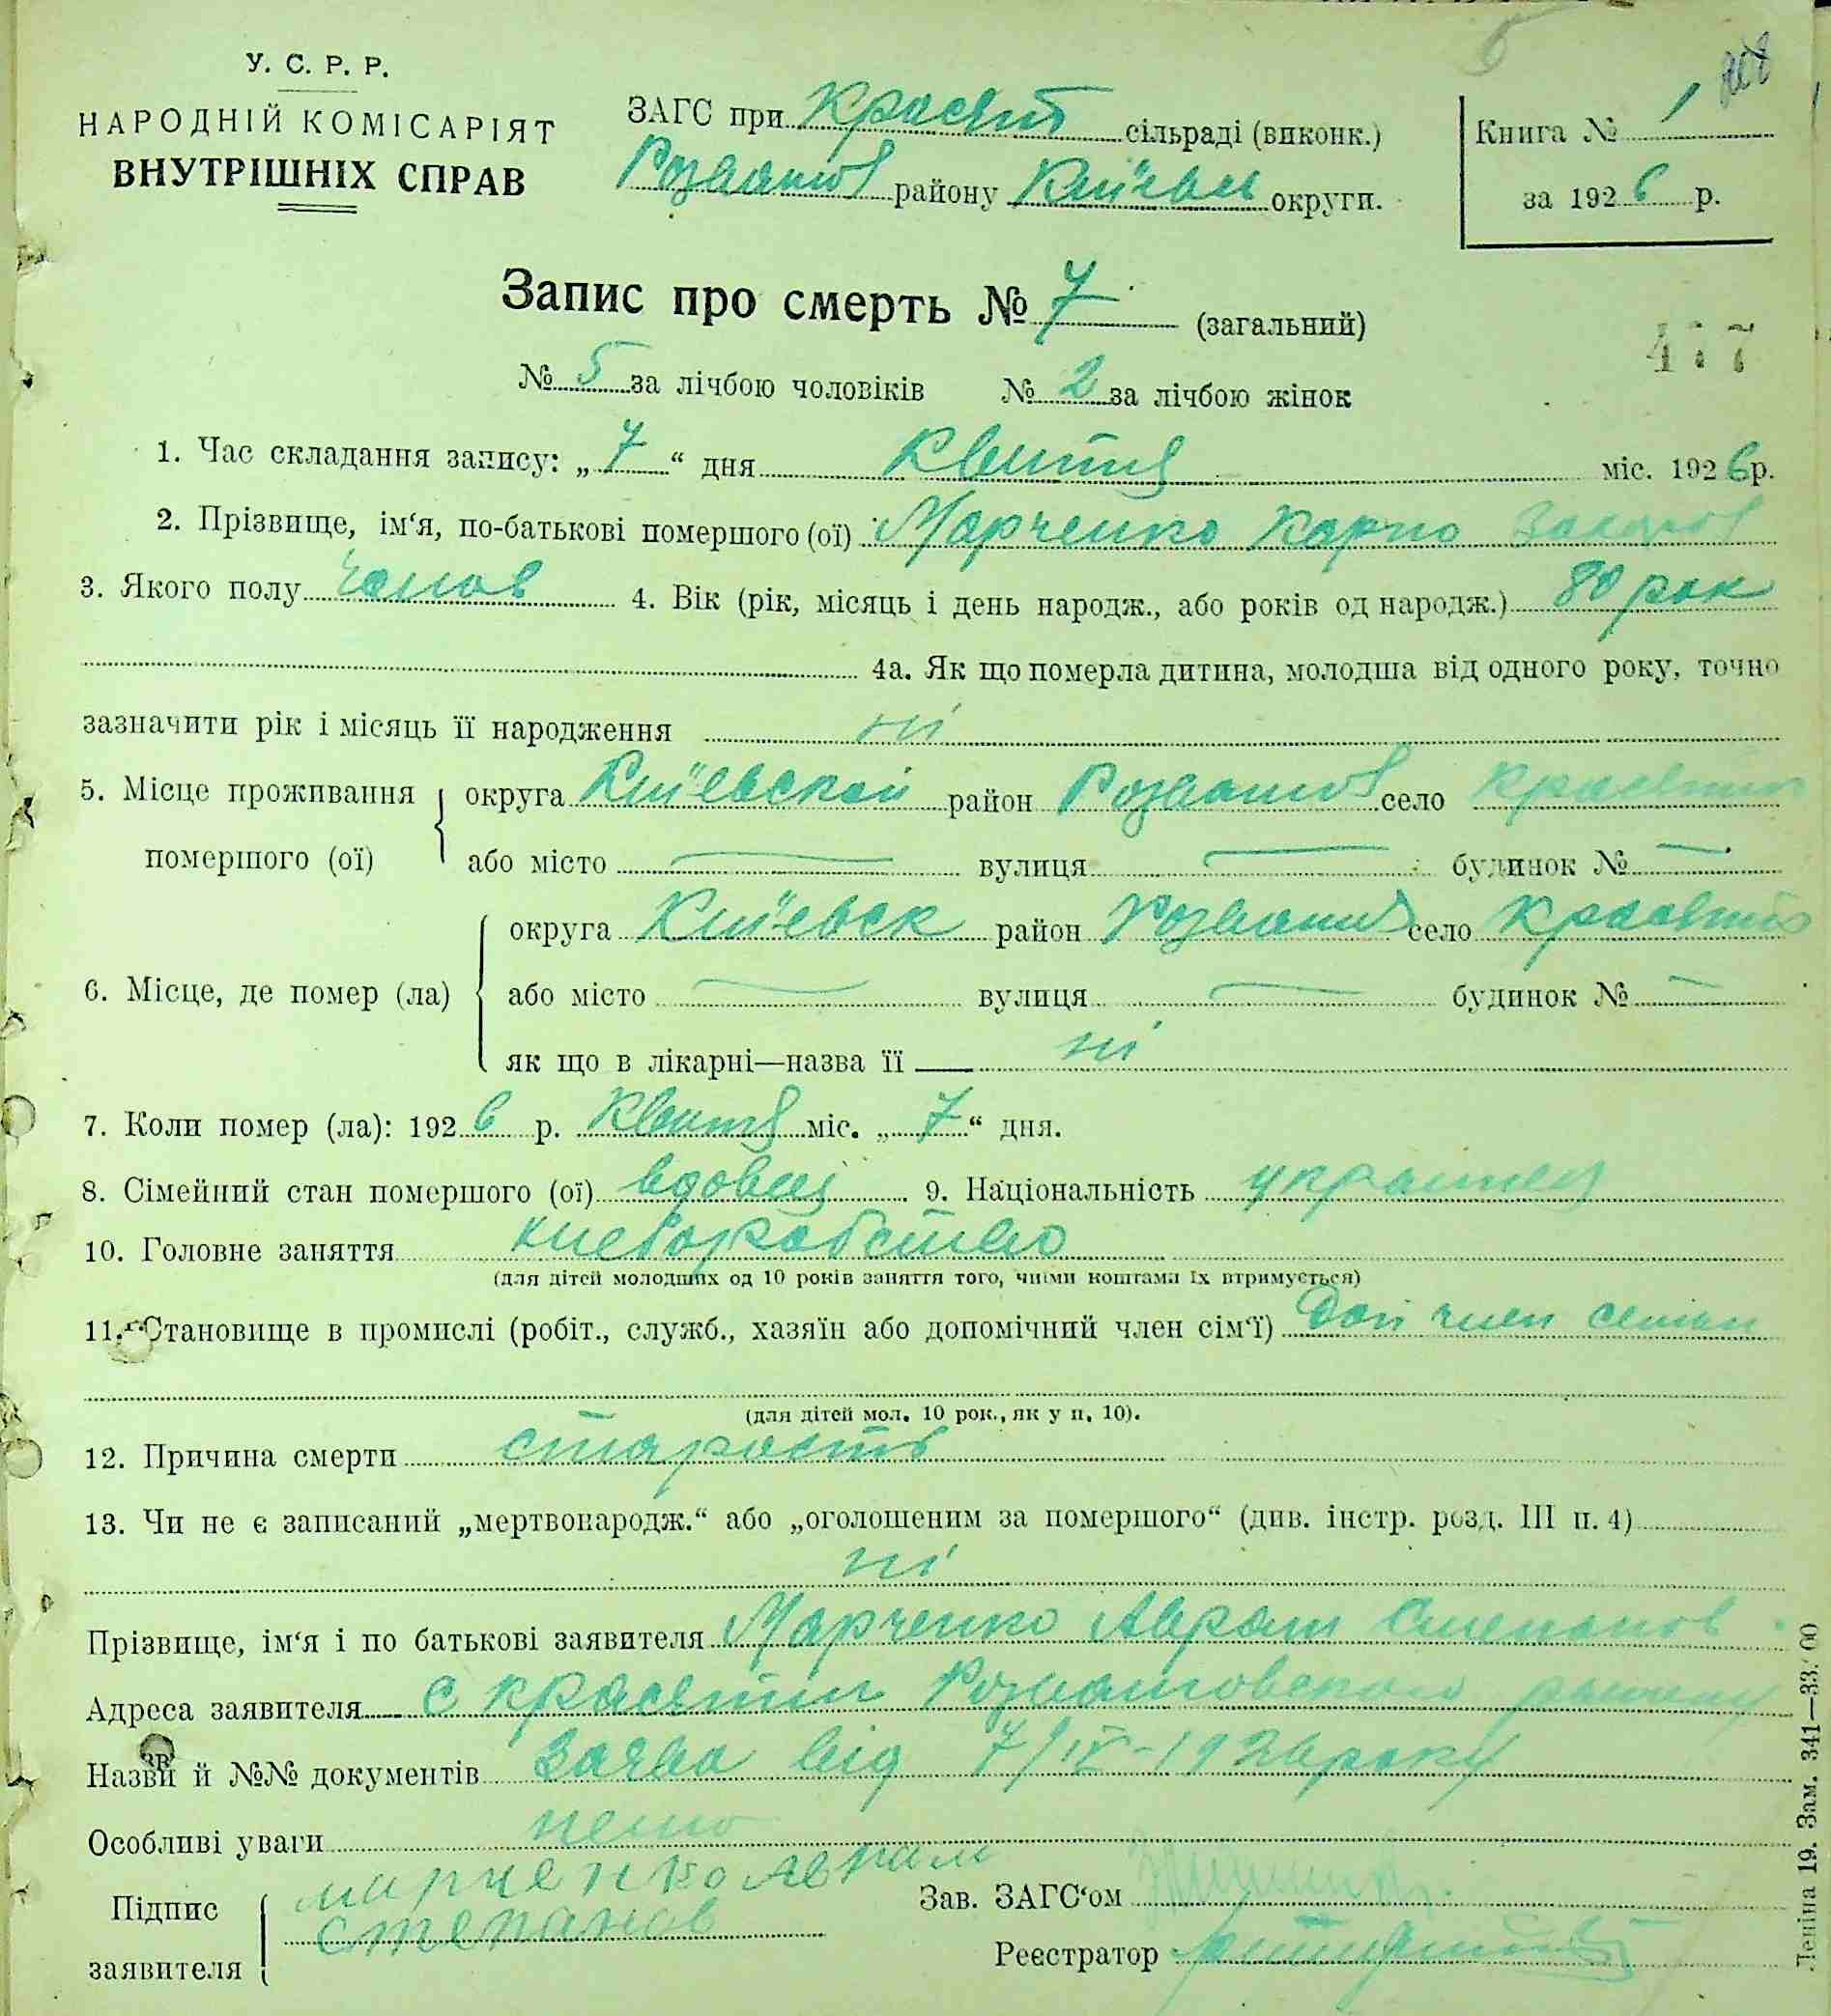 У. С. Р. Р.
НАРОДНІЙ КОМІСАРІЯТ
ВНУТРІШНІХ СПРАВ
ЗАГС при Красят сільраді (виконк.)
Розважів району Київсь округи.
Книга № 1
за 1926 р.
Запис про смерть № 7 (загальний)
477
№ 5 за лічбою чоловіків № 2 за лічбою жінок
1. Час складання запису: „7“ дня Квітня міс. 1926 р.
2. Прізвище, ім‘я, по-батькові помершого (ої) Марченко Карпо Захаров
3. Якого полу чолов 4. Вік (рік, місяць і день народж., або років од народж.) 80 рок
4а. Як що померла дитина, молодша від одного року, точно
зазначити рік і місяць її народження ні
5. Місце проживання помершого (ої) округа Київской район село
або місто — вулиця — будинок № —
6. Місце, де помер (ла) округа Київск район село
або місто — вулиця — будинок № —
як що в лікарні—назва її — ні
7. Коли помер (ла): 1926 р. Квітня міс. „7“ дня.
8. Сімейний стан помершого (ої) вдовец 9. Національність українец
10. Головне заняття хлеборобство
(для дітей молодших од 10 років заняття того, чиїми коштами їх втримується)
11. Становище в промислі (робіт., служб., хазяїн або допомічний член сім‘ї) Доп член семьи
(для дітей мол. 10 рок., як у п. 10).
12. Причина смерти старость
13. Чи не є записаний „мертвонародж.“ або „оголошеним за помершого“ (див. інстр. розд. III п. 4)
ні
Прізвище, ім‘я і по батькові заявителя Марченко Аврам Степанов
Адреса заявителя с Розважовского району
Назви й №№ документів Заява від 7/IV-1926 року
Особливі уваги нема
Підпис заявителя марченко Аврам
степанов
Зав. ЗАГС‘ом
Реєстратор
Леніна 19. Зам. 341—33.000